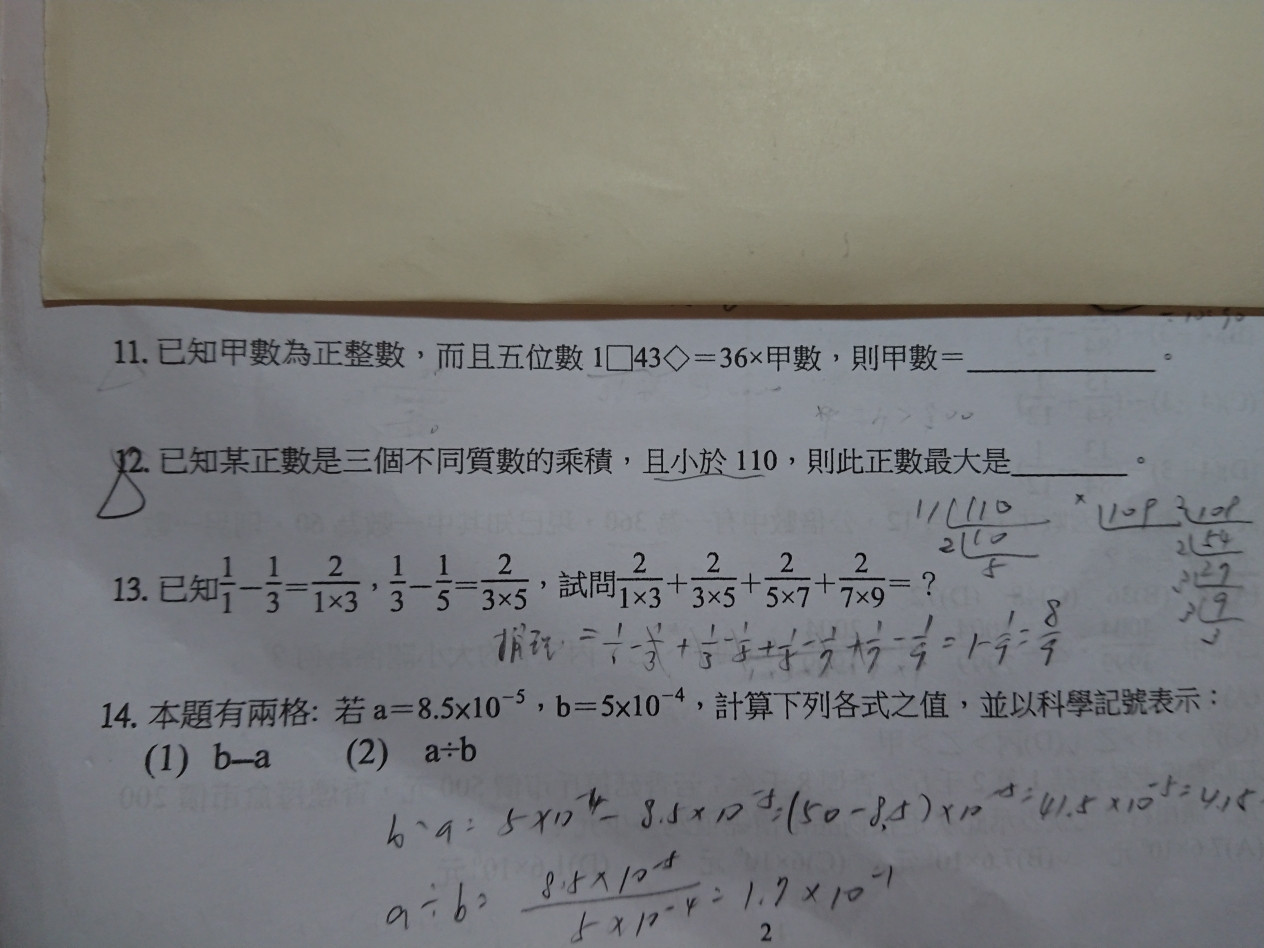 11. 已知甲數為正整數，而且五位數 1□43◇＝36×甲數，則甲數＝__________。
12. 已知某正數是三個不同質數的乘積，且小於 110，則此正數最大是________。
11 110
2 10
5
× 109
2 108
2 54
3 27
3 9
3
13. 已知 1/1 − 1/3 = 2/(1×3)，1/3 − 1/5 = 2/(3×5)，試問 2/(1×3) + 2/(3×5) + 2/(5×7) + 2/(7×9) =？
= 1/1 − 1/3 + 1/3 − 1/5 + 1/5 − 1/7 + 1/7 − 1/9 = 1 − 1/9 = 8/9
14. 本題有兩格: 若 a＝8.5×10⁻⁵，b＝5×10⁻⁴，計算下列各式之值，並以科學記號表示：
(1) b–a (2) a÷b
b-a = 5×10⁻⁴ − 8.5×10⁻⁵ = (50−8.5)×10⁻⁵ = 41.5×10⁻⁵ = 4.15
a÷b = (8.5×10⁻⁵)/(5×10⁻⁴) = 1.7×10⁻¹
2